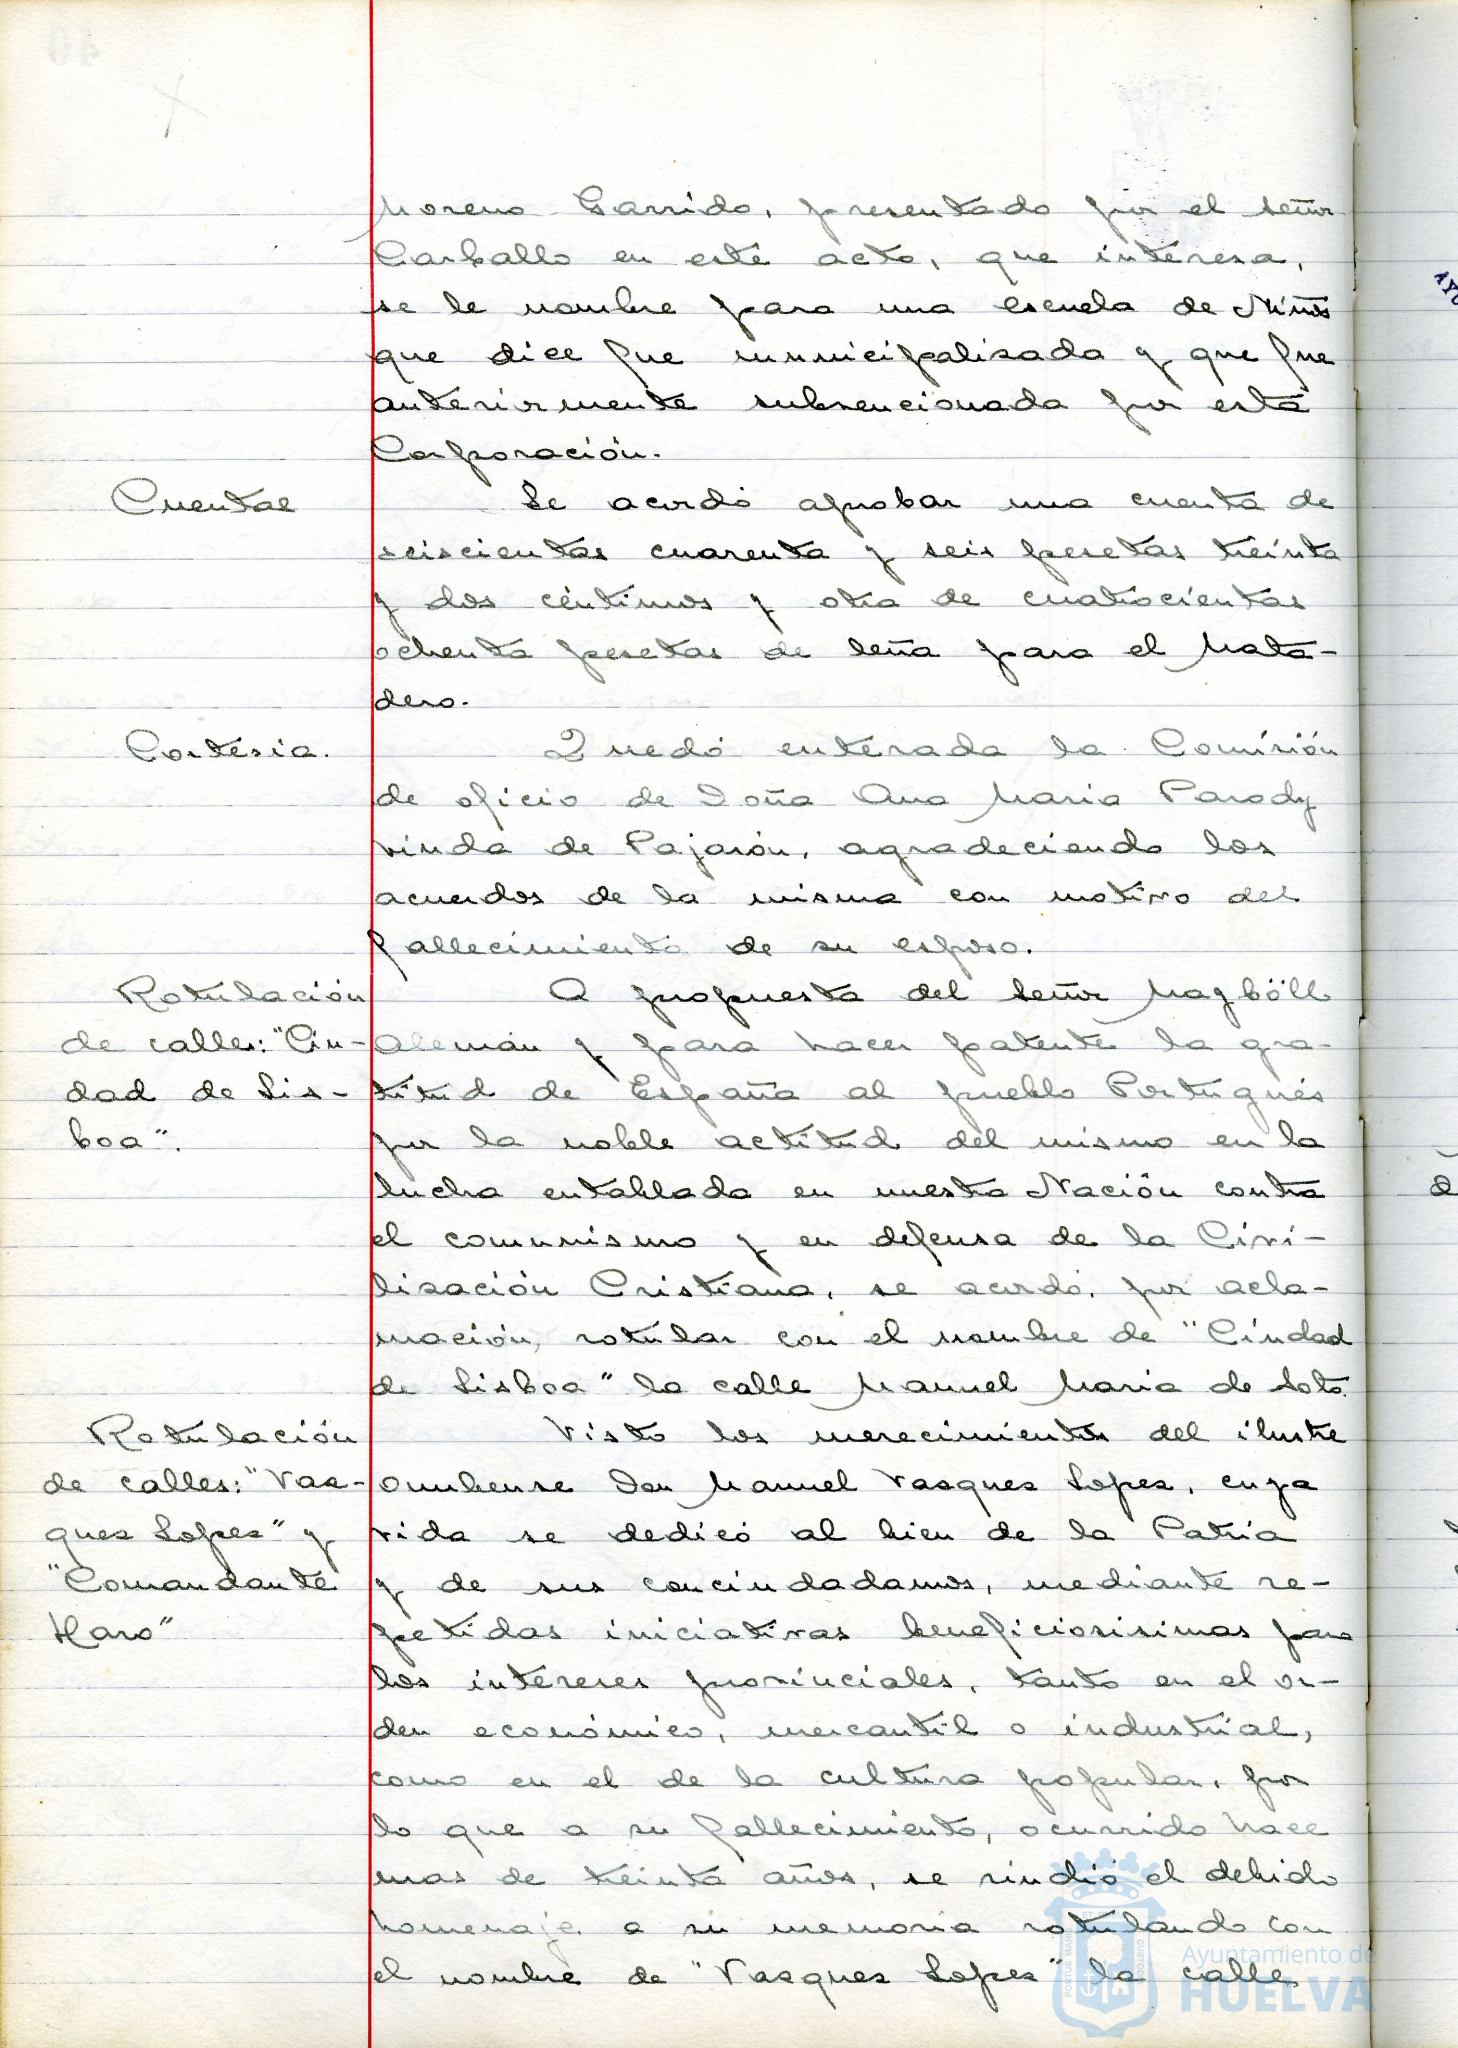 Moreno Garrido, presentado por el señor
Carballo en este acto, que interesa,
se le nombre para una escuela de Niños
que dice fue municipalizada y que fue
anteriormente subvencionada por esta
Corporación.
Cuentas
Se acordó aprobar una cuenta de
seiscientas cuarenta y seis pesetas treinta
y dos céntimos y otra de cuatrocientas
ochenta pesetas de leña para el Mata-
dero.
Cortesia.
Quedó enterada la Comisión
de oficio de Doña Ana Maria Parody
viuda de Pajarón, agradeciendo los
acuerdos de la misma con motivo del
fallecimiento de su esposo.
Rotulación
de calles: "Ciu-
dad de Lis-
boa".
A propuesta del señor Magböll
Alemán y para hacer patente la gra-
titud de España al pueblo Portugués
por la noble actitud del mismo en la
lucha entablada en nuestra Nación contra
el comunismo y en defensa de la Civi-
lización Cristiana, se acordó, por acla-
mación, rotular con el nombre de "Ciudad
de Lisboa" la calle Manuel Maria de Soto.
Rotulación
de calles: "Vaz-
ques Lopez" y
"Comandante
Haro"
Visto los merecimientos del ilustre
onubense Don Manuel Vasques Lopez, cuya
vida se dedicó al bien de la Patria
y de sus conciudadanos, mediante re-
petidas iniciativas beneficiosisimas para
los intereses provinciales, tanto en el or-
den económico, mercantil o industrial,
como en el de la cultura popular, por
lo que a su fallecimiento, ocurrido hace
mas de treinta años, se rindió el debido
homenaje a su memoria rotulando con
el nombre de "Vasques Lopez" la calle
Ayuntamiento de
HUELVA